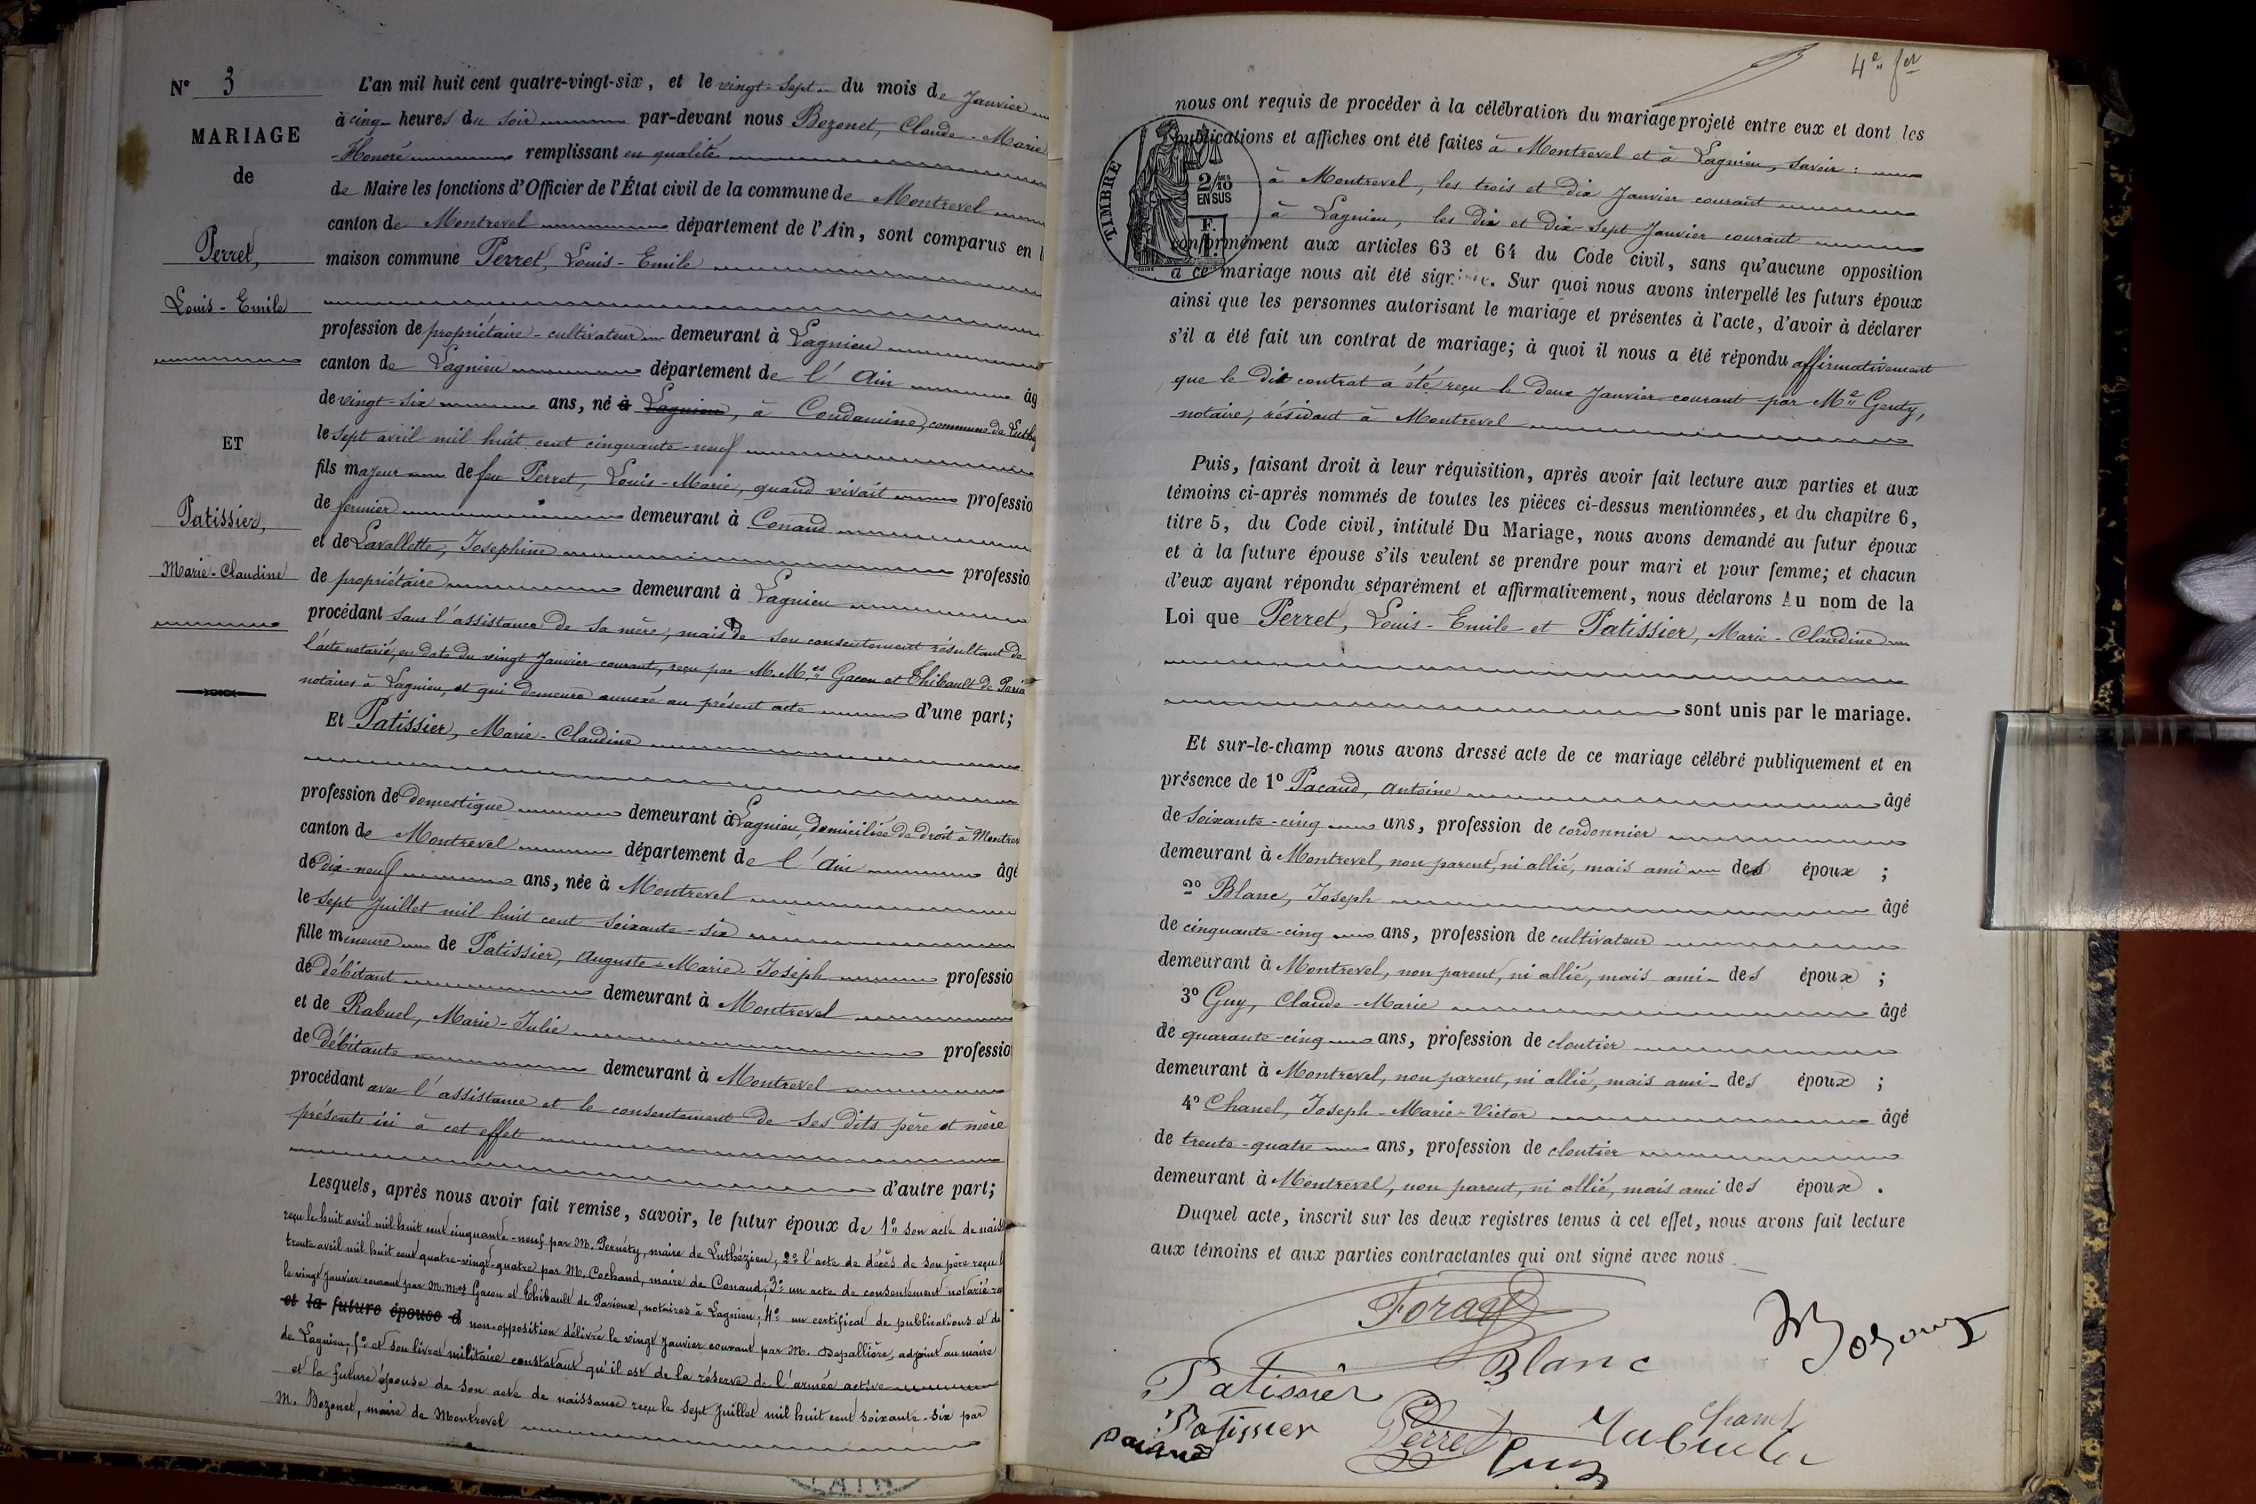 N° 3
MARIAGE
de
Perret,
Louis-Emile
ET
Patissier,
Marie-Claudine
L'an mil huit cent quatre-vingt-six, et le vingt-sept du mois de Janvier
à cinq heures du soir par-devant nous Bozonet, Claude-Marie
-Honoré remplissant en qualité
de Maire les fonctions d'Officier de l'État civil de la commune de Montrevel
canton de Montrevel département de l'Ain, sont comparus en l
maison commune Perret, Louis-Emile
profession de propriétaire-cultivateur demeurant à Lagnieu
canton de Lagnieu département de l'Ain âg
de vingt-six ans, né à Lagnieu, à Condamine, commune de Luthé
le sept avril mil huit cent cinquante-neuf
fils majeur de feu Perret, Louis-Marie, quand vivait professio
de fermier demeurant à Conand
et de Lavallette, Josephine professio
de propriétaire demeurant à Lagnieu
procédant sans l'assistance de sa mère, mais de son consentement résultant de
l'acte notarié, en date du vingt Janvier courant, reçu par M. Mes Gacon et Thibault de Paria
notaires à Lagnieu, et qui demeure annexé au présent acte d'une part;
Et Patissier, Marie-Claudine
profession de domestique demeurant à Lagnieu, domiciliée de droit à Montrev
canton de Montrevel département de l'Ain âgé
de dix-neuf ans, née à Montrevel
le sept Juillet mil huit cent soixante-six
fille mineure de Patissier, Auguste-Marie-Joseph professio
de débitant demeurant à Montrevel
et de Rabuel, Marie-Julie professio
de débitante demeurant à Montrevel
procédant avec l'assistance et le consentement de ses dits père et mère
présents ici à cet effet
d'autre part;
Lesquels, après nous avoir fait remise, savoir, le futur époux de 1° son acte de naiss
reçu le huit avril mil huit cent cinquante-neuf par M. Pernéty, maire de Luthézieu, 2° l'acte de décès de son père reçu l
trente avril mil huit cent quatre-vingt-quatre par M. Cochand, maire de Conand; 3° un acte de consentement notarié re
le vingt Janvier courant par M. Mes Gacon et Thibault de Parieux, notaires à Lagnieu; 4° un certificat de publications et de
et la future épouse d non-opposition délivré le vingt Janvier courant par M. Depallière, adjoint au maire
de Lagnieu; 5° et son livret militaire constatant qu'il est de la réserve de l'armée active
et la future épouse de son acte de naissance reçu le sept Juillet mil huit cent soixante-six par
M. Bozonet, maire de Montrevel
4e fet
TIMBRE
2/10
EN SUS
F.
1.
nous ont requis de procéder à la célébration du mariage projeté entre eux et dont les
publications et affiches ont été faites à Montrevel et à Lagnieu, savoir:
à Montrevel, les trois et dix Janvier courant
à Lagnieu, les dix et dix-sept Janvier courant
conformément aux articles 63 et 64 du Code civil, sans qu'aucune opposition
à ce mariage nous ait été signifiée. Sur quoi nous avons interpellé les futurs époux
ainsi que les personnes autorisant le mariage et présentes à l'acte, d'avoir à déclarer
s'il a été fait un contrat de mariage; à quoi il nous a été répondu affirmativement
que le dit contrat a été reçu le deux Janvier courant par Me Genty,
notaire, résidant à Montrevel
Puis, faisant droit à leur réquisition, après avoir fait lecture aux parties et aux
témoins ci-après nommés de toutes les pièces ci-dessus mentionnées, et du chapitre 6,
titre 5, du Code civil, intitulé Du Mariage, nous avons demandé au futur époux
et à la future épouse s'ils veulent se prendre pour mari et pour femme; et chacun
d'eux ayant répondu séparément et affirmativement, nous déclarons Au nom de la
Loi que Perret, Louis-Emile et Patissier, Marie-Claudine
sont unis par le mariage.
Et sur-le-champ nous avons dressé acte de ce mariage célébré publiquement et en
présence de 1° Pacaud, Antoine âgé
de soixante-cinq ans, profession de cordonnier
demeurant à Montrevel, non parent, ni allié, mais ami des époux;
2° Blanc, Joseph âgé
de cinquante-cinq ans, profession de cultivateur
demeurant à Montrevel, non parent, ni allié, mais ami des époux;
3° Guy, Claude-Marie âgé
de quarante-cinq ans, profession de cloutier
demeurant à Montrevel, non parent, ni allié, mais ami des époux;
4° Chanel, Joseph-Marie-Victor âgé
de trente-quatre ans, profession de cloutier
demeurant à Montrevel, non parent, ni allié, mais ami des époux.
Duquel acte, inscrit sur les deux registres tenus à cet effet, nous avons fait lecture
aux témoins et aux parties contractantes qui ont signé avec nous
Bozonet
Patissier
Blanc
Patissier
Perret
Chanel
Pacaud
Guy